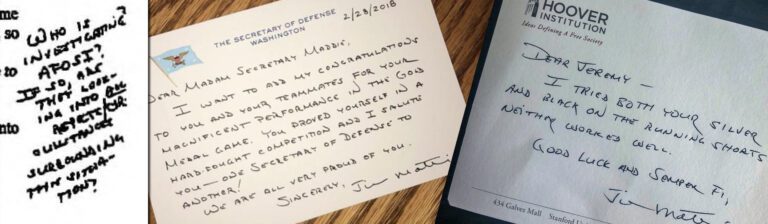 me
so
to
nto
WHO IS
INVESTIGATING
AFOSI?
IF SO, ARE
THEY LOOK-
ING INTO ALL
ASPECTS OR
SURROUNDING
THIS SITUA-
TION?
THE SECRETARY OF DEFENSE
WASHINGTON
2/23/2018
DEAR MADAM SECRETARY MADDIE,
I WANT TO ADD MY CONGRATULATIONS
TO YOU AND YOUR TEAMMATES FOR YOUR
MAGNIFICENT PERFORMANCE IN THE GOLD
MEDAL GAME. YOU PROVED YOURSELF IN A
HARD-FOUGHT COMPETITION AND I SALUTE
YOU — ONE SECRETARY OF DEFENSE TO
ANOTHER!
WE ARE ALL VERY PROUD OF YOU.
SINCERELY, Jim Mattis
HOOVER
INSTITUTION
Ideas Defining A Free Society
DEAR JEREMY —
I TRIED BOTH YOUR SILVER
AND BLACK ON THE RUNNING SHORTS
NEITHER WORKED WELL.
GOOD LUCK AND SEMPER FI,
Jim Matt
434 Galvez Mall Stanford Un